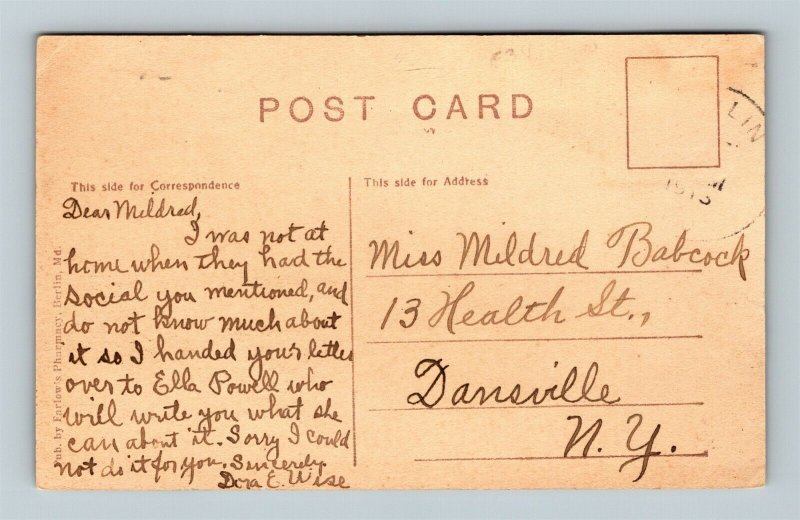 POST CARD
LIN
M
1913
This side for Correspondence
This side for Address
Dear Mildred,
I was not at
home when they had the
social you mentioned, and
do not know much about
it so I handed your letter
over to Ella Powell who
will write you what she
can about it. Sorry I could
not do it for you. Sincerely
Dora E. Wise
Miss Mildred Babcock
13 Health St.,
Dansville
N.Y.
Pub. by Farlow's Pharmacy, Berlin, Md.